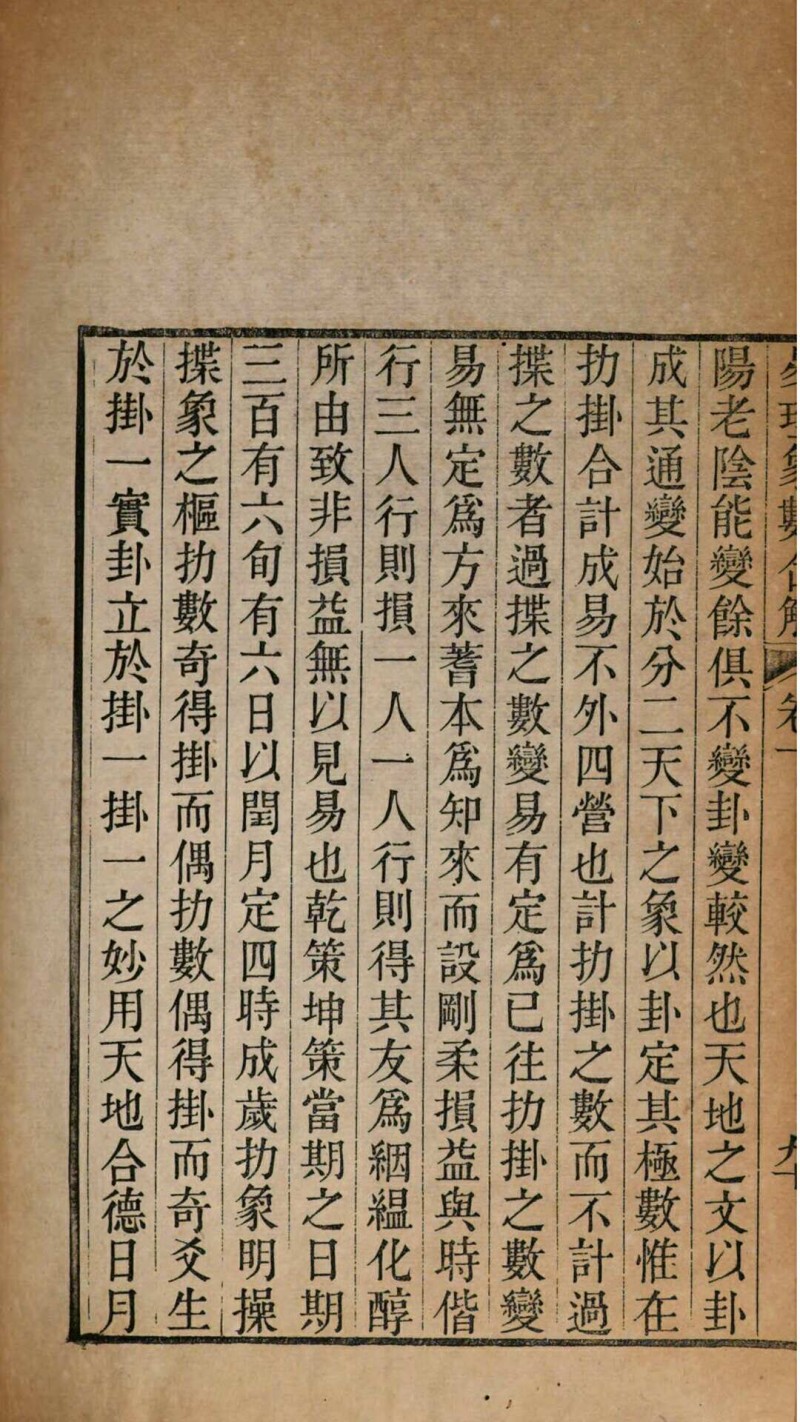 陽老陰能變餘俱不變卦變較然也天地之文以卦
成其通變始於分二天下之象以卦定其極數惟在
扐掛合計成易不外四營也計扐掛之數而不計過
揲之數者過揲之數變易有定爲已往扐掛之數變
易無定爲方來蓍本爲知來而設剛柔損益與時偕
行三人行則損一人一人行則得其友爲絪縕化醇
所由致非損益無以見易也乾策坤策當期之日期
三百有六旬有六日以閏月定四時成歲扐象明操
揲象之樞扐數奇得掛而偶扐數偶得掛而奇爻生
於掛一實卦立於掛一掛一之妙用天地合德日月